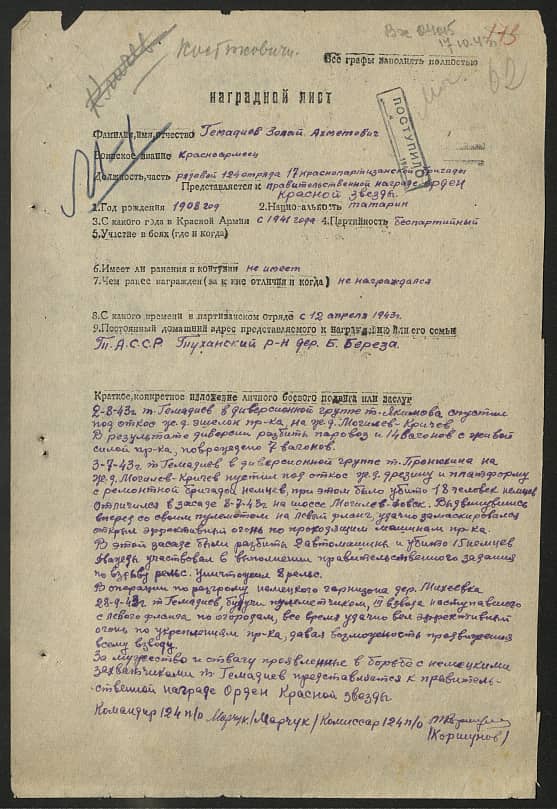 Костюковичи.
Вх 04015
17.10.43г.
113
62
Все графы заполнять полностью
НАГРАДНОЙ ЛИСТ
ПОСТУПИЛО
Фамилия, имя, отчество Гемадиев Золай Ахметович
Воинское звание Красноармеец
Должность, часть рядовой 124 отряда 17 Краснопартизанской бригады
Представляется к правительственной награде орден
Красной звезды.
1.Год рождения 1908 год 2.Национальность татарин
3.С какого года в Красной Армии с 1941 года 4.Партийность беспартийный
5.Участие в боях (где и когда)
6.Имеет ли ранения и контузии не имеет
7.Чем ранее награжден (за какие отличия и когда) не награждался
8.С какого времени в партизанском отряде с 12 апреля 1943г.
9.Постоянный домашний адрес представляемого к награждению или его семьи
Т.А.С.С.Р. Туханский р-н дер. Б. Береза.
Краткое, конкретное изложение личного боевого подвига или заслуг
2-8-43г т. Гемадиев в диверсионной группе т. Якимова спустил
под откос ж.д. эшелон пр-ка, на ж.д. Могилев-Кричев.
В результате диверсии разбиты паровоз и 14 вагонов с живой
силой пр-ка, повреждено 7 вагонов.
3-7-43г т Гемадиев в диверсионной группе т. Пронюкина на
ж.д. Могилев-Кричев пустил под откос ж.д. дрезину и платформу
с ремонтной бригадой немцев, при этом было убито 18 человек немцев
Отличился в засаде 8-9-43г на шоссе Могилев-Довск. Выдвинувшись
вперед со своим пулеметом на левый фланг, удачно замаскировался
открыл эффективный огонь по проходящим машинам пр-ка.
В этой засаде были разбиты 2 автомашины и убито 15 немцев
Дважды участвовал в выполнении правительственного задания
по взрыву рельс. Уничтожил 8 рельс.
В операции по разгрому немецкого гарнизона дер. Михеевка
28-9-43г т Гемадиев, будучи пулеметчиком, III взвода наступавшего
с левого фланга по огородам, все время удачно вел эффективный
огонь по укреплениям пр-ка, давая возможность продвижения
всему взводу.
За мужество и отвагу проявленные в борьбе с немецкими
захватчиками т Гемадиев представляется к правитель-
ственной награде Орден Красной звезды
Командир 124 п/о Марчук /Марчук/ Комиссар 124 п/о Коршунов
(Коршунов)